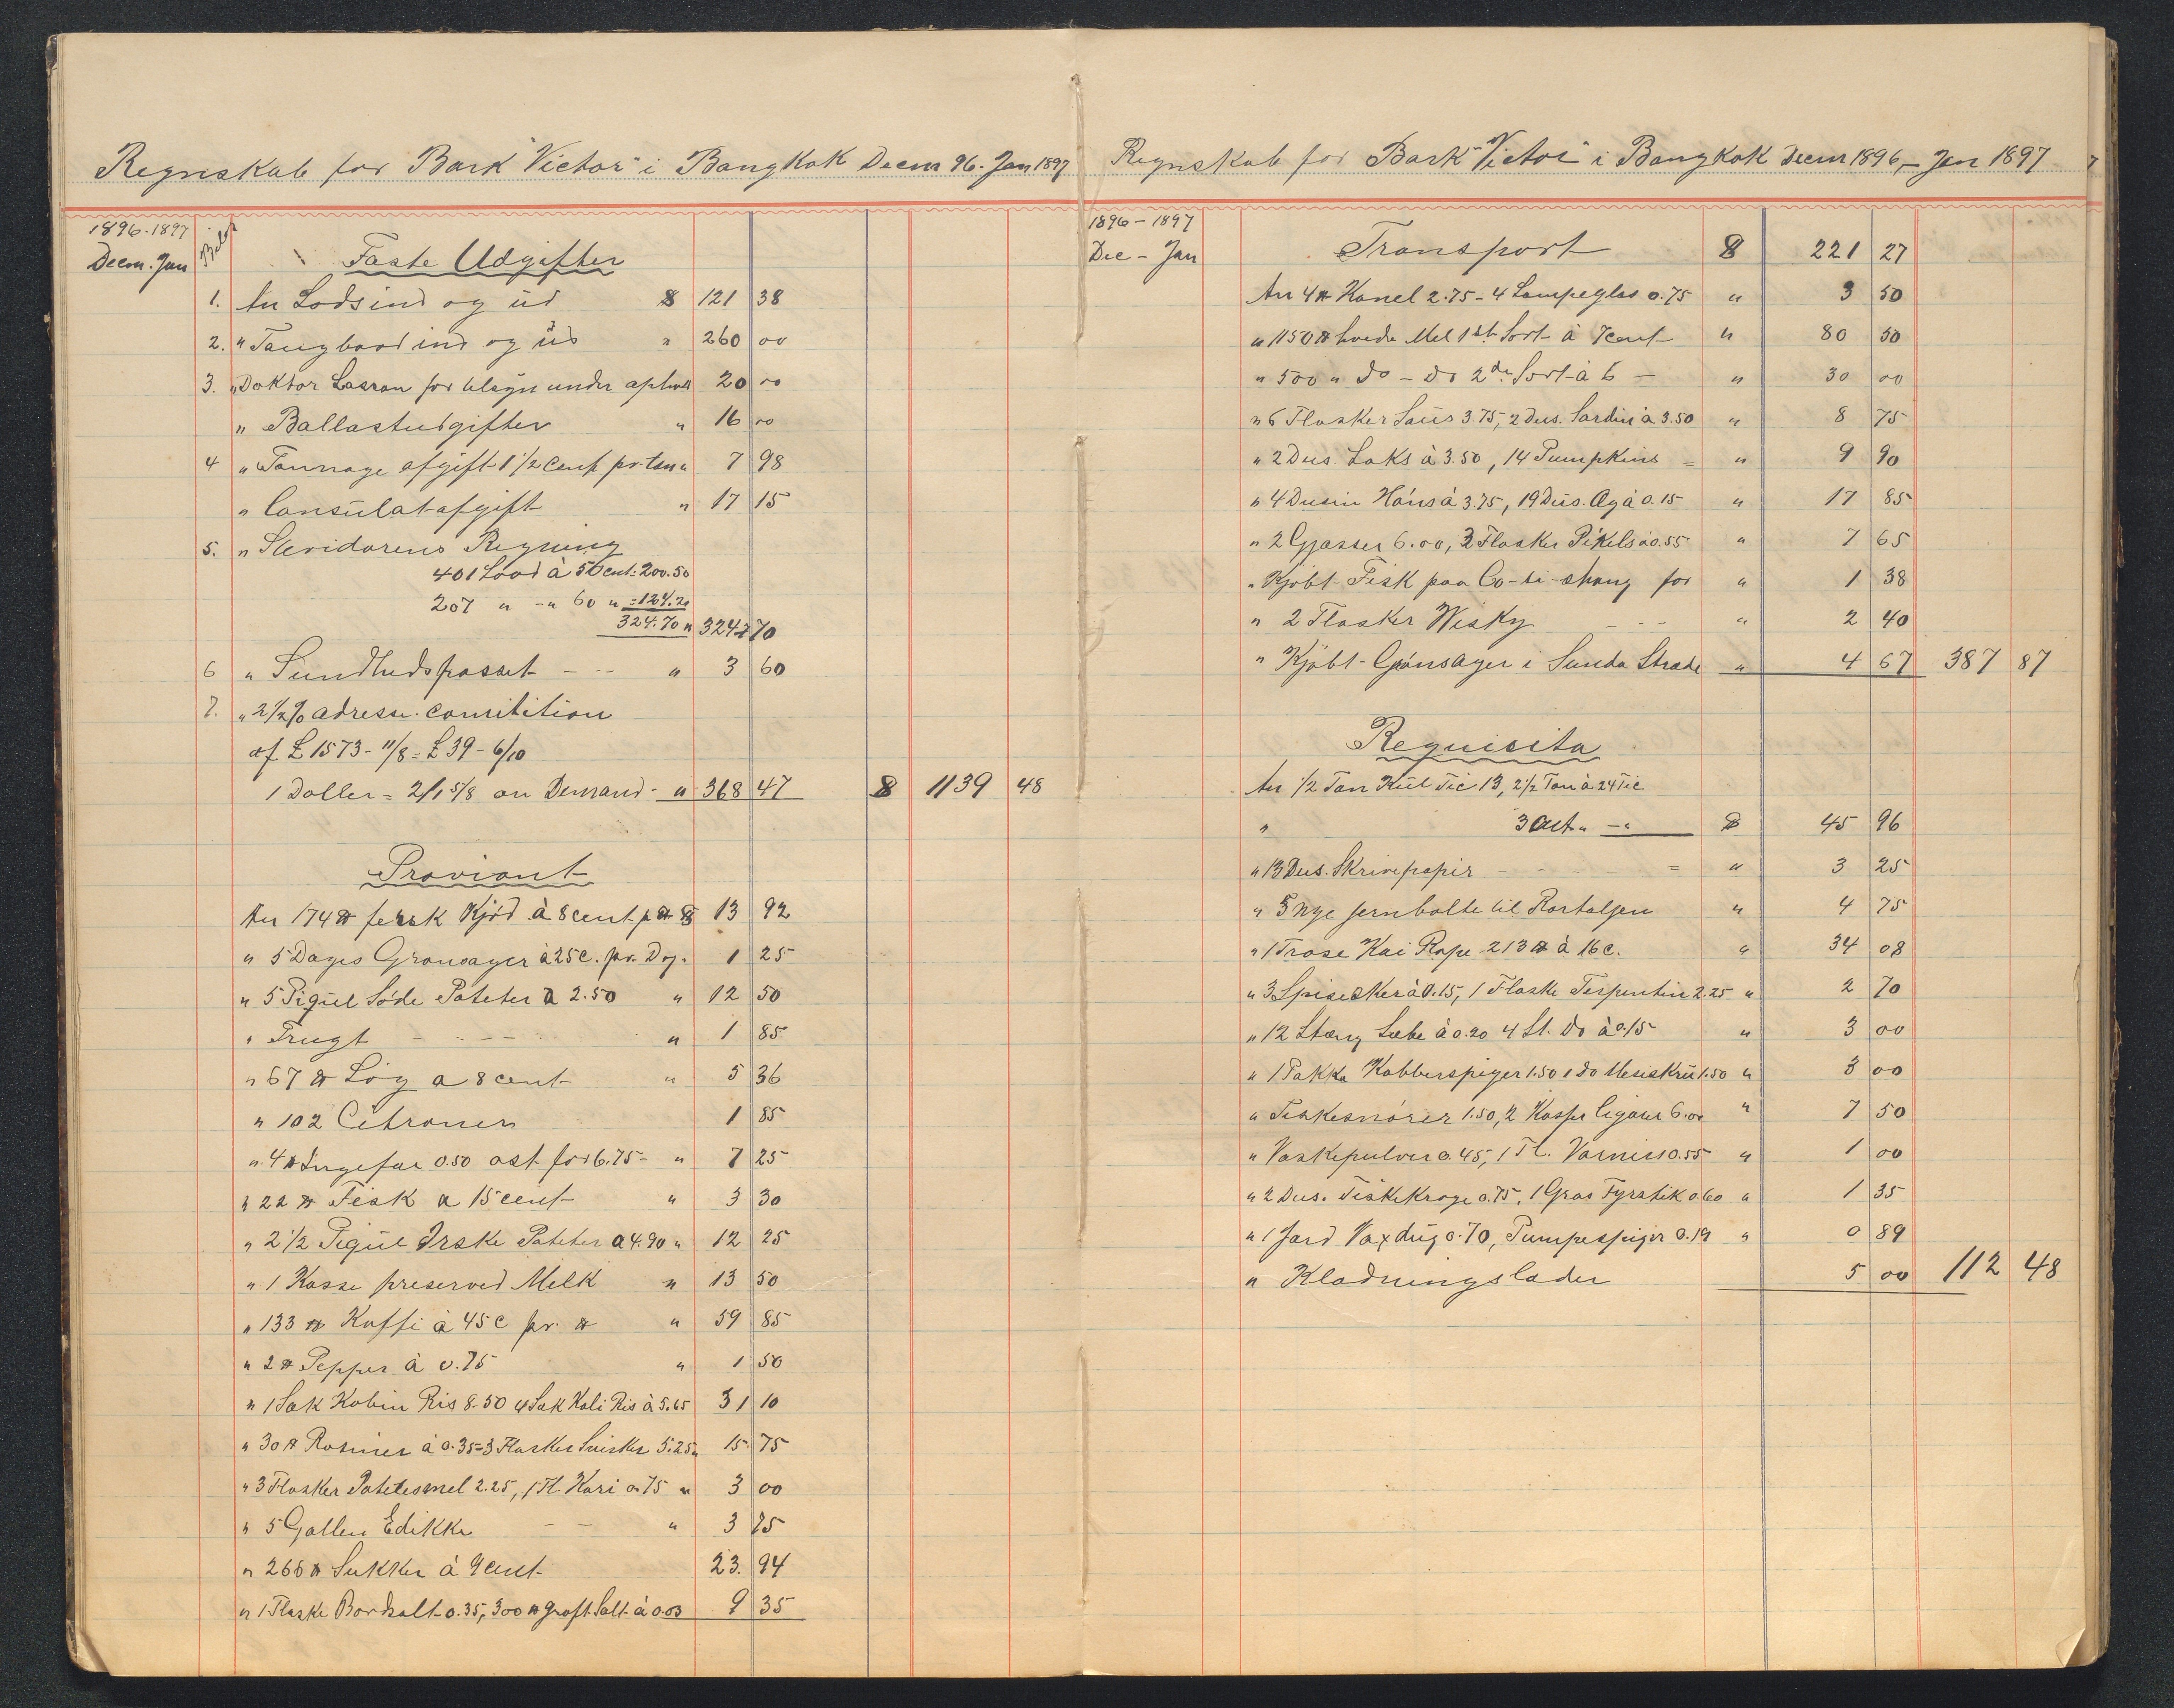 Regnskab for Bark "Victor" i Bangkok Decm 96. Jan 1897
1896-1897
Decm. Jan
Bilag
Faste Udgifter
1. An Lods ind og ud $ 121 38
2. " Taugbaad ind og ud " 260 00
3. " Doktor Lasran for tilsyn under 20 00
" Ballastudgifter " 16 00
4 " Tonnage afgift 1 1/2 Cent pr. ton " 7 98
" Consulatafgift " 17 15
5. " Stevidorens Regning
401 Load à 50 Cent = 200.50
207 " - " 60 " = 124.20
324.70 " 324 70
6 " Sundhedspasset - - - " 3 60
7. " 2 1/2 % adresse comitition
af £ 1573 - 11/8 = £ 39 - 6/10
1 Doller = 2/1 5/8 on Demand - " 368 47 $ 1139 48
Proviant
An 174 ℔ fersk Kjød à 8 cent p ℔ $ 13 92
" 5 Dages Grønsager à 25 C. pr. Dag. 1 25
" 5 Pigul Søde Poteter à 2.50 " 12 50
" Frugt - - - - " 1 85
" 67 ℔ Løg a 8 cent " 5 36
" 102 Citroner 1 85
" 4 ℔ Ingefær 0.50 ost for 6.75 - " 7 25
" 22 ℔ Fisk a 15 cent " 3 30
" 2 1/2 Pigul Irske Poteter a 4.90 " 12 25
" 1 Kasse preserved Melk " 13 50
" 133 ℔ Kaffi à 45 C pr. ℔ " 59 85
" 2 ℔ Pepper à 0.75 " 1 50
" 1 Sæk Kobin Ris 8.50 4 Sæk Kali Ris à 5.65 31 10
" 30 ℔ Rosiner à 0.35 - 3 Flasker Svisker 5.25 " 15 75
" 3 Flasker Potetesmel 2.25, 1 Fl. Kari 0.75 " 3 00
" 5 Gallen Edikke - - " 3 75
" 266 ℔ Sukker à 9 cent 23. 94
" 1 Flaske Bordsalt 0.35, 300 ℔ groft Salt à 0.03 9 35
Regnskab for Bark "Victor" i Bangkok Decm 1896, - Jan 1897
7
1896 - 1897
Dec - Jan
Transport $ 221 27
An 4 ℔ Kanel 2.75 - 4 Lampeglas 0.75 " 3 50
" 1150 ℔ hvede Mel 1st Sort à 7 cent " 80 50
" 500 " do - do 2de Sort à 6 - " 30 00
" 6 Flasker Saus 3.75, 2 Dus. Sardin à 3.50 " 8 75
" 2 Dus. Laks à 3.50, 14 Pumpkins = " 9 90
" 4 Dusin Høns à 3.75, 19 Dus. Æg à 0.15 " 17 85
" 2 Gjæsser 6.00, 3 Flasker Pikels à 0.55 " 7 65
" Kjøbt Fisk paa Co-si-chang for " 1 38
" 2 Flasker Wisky - - - " 2 40
" Kjøbt Grønsager i Sunda Stræde " 4 67 387 87
Requisita
An 1/2 Ton Kul Tic 13, 2 1/2 Ton à 24 Tic
" 3 Alt " - " $ 45 96
" 13 Dus. Skrivepapir - - - - = " 3 25
" 5 nye jernbolte til Rortaljen " 4 75
" 1 Trose Kai Rope 213 ℔ à 16 c. " 34 08
" 3 Spisesker à 0.15, 1 Flaske Terpentin 2.25 " 2 70
" 12 Stang Sæbe à 0.20 4 St. do à 0.15 " 3 00
" 1 Pakka Kobberspiger 1.50 1 do Messkru 1.50 " 3 00
" Fiskesnører 1.50, 2 Kasser Cigarer 6.00 " 7 50
" Vaskepulver 0.45, 1 Fl. Varniss 0.55 " 1 00
" 2 Dus. Fiskekroge 0.75, 1 Gros Fyrstik 0.60 " 1 35
" 1 Jard Voxdug 0.70, Pumpespiger 0.19 " 0 89
" Kladningslader 5 00 112 48